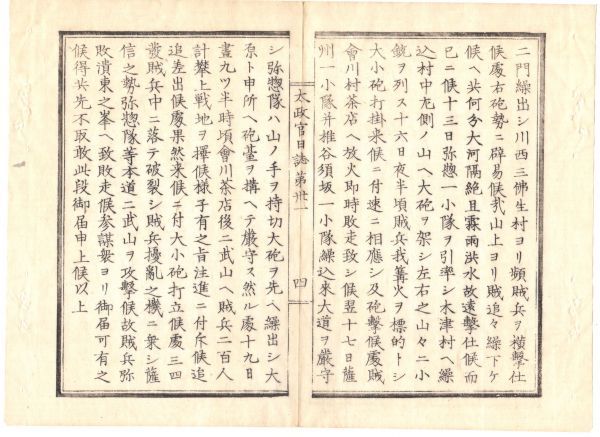 二門繰出シ川西三佛生村ヨリ頻賊兵ヲ横撃仕
候處右砲勢ニ辟易候哉山上ヨリ賊追々繰下ケ
候ヘ共何分大河隔絶且霖雨洪水故遠撃仕候而
已ニ候十三日弥惣一小隊ヲ引率シ木津村ヘ繰
込村中左側ノ山ヘ大砲ヲ架シ左右之山々ニ小
銃ヲ列ス十六日夜半頃賊兵我篝火ヲ標的トシ
大小砲打掛来候ニ付速ニ相應シ及砲撃候處賊
會川村茶店ヘ放火即時敗走致シ候翌十七日薩
州一小隊并椎谷須坂一小隊繰込来大道ヲ厳守
太政官日誌第卅一
四
シ弥惣隊ハ山ノ手ヲ持切大砲ヲ先ヘ繰出シ大
原ト申所ヘ砲䑓ヲ搆ヘテ厳守ス然ル處十九日
晝九ツ半時頃會川茶店後ニ武山ヘ賊兵二百人
計攀上戦地ヲ擇候様子有之旨注進ニ付斥候追
追差出候處果然来候ニ付大小砲打立候處三四
發賊兵中ニ落テ破裂シ賊兵擾亂之機ニ衆シ薩
信之勢弥惣隊等本道ニ武山ヲ攻撃候故賊兵弥
敗潰東之峯ヘ致敗走候参謀架ヨリ御届可有之
候得共先不取敢此段御届申上候以上